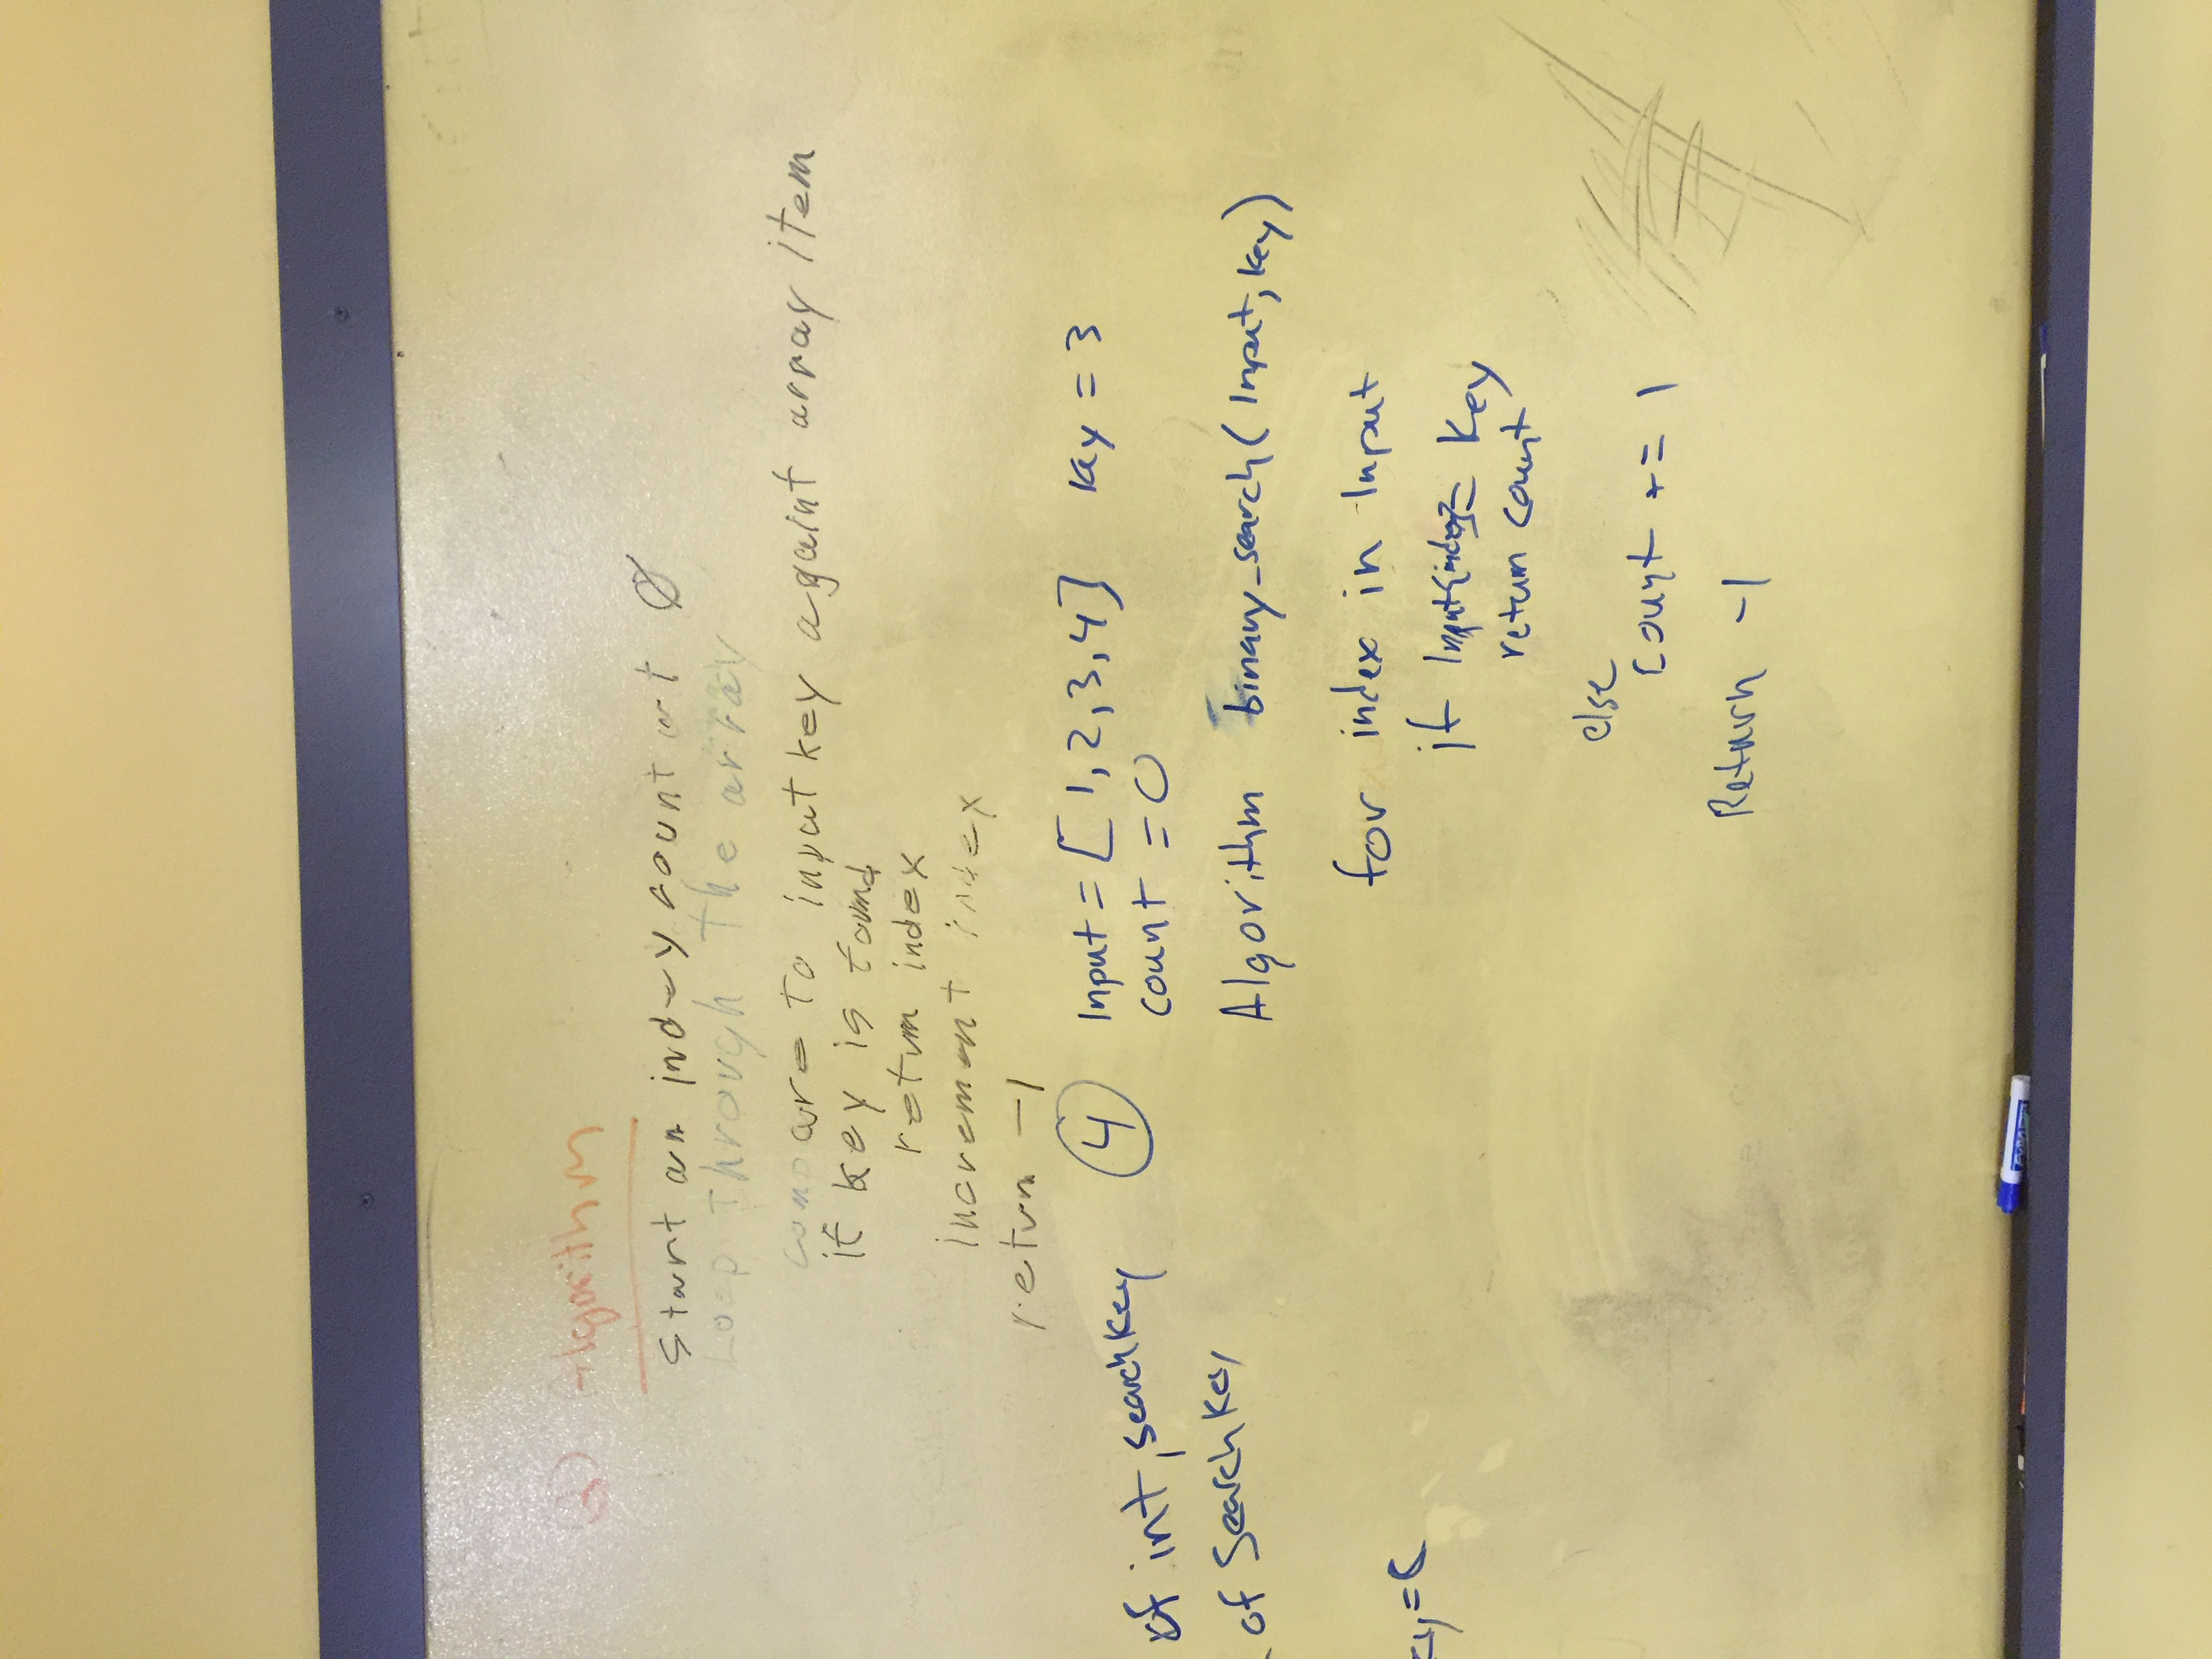 Algorithm
Start an index count at Ø
Loop through the array
compare to input key againt array item
if key is found
return index
increment index
return -1
of int, searchkey
of Search Key
④ Input = [1,2,3,4] key = 3
count = 0
Algorithm binary_search( Input, key)
for index in Input
if Input[index] = Key
return count
else
count += 1
Return -1